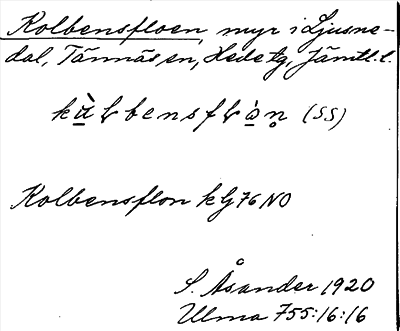 Kolbensfloen, myr i Ljusne-
dal, Tännäs sn, Hede tg, Jämtl. l.
Kolbensflon kbl 76 NO
S. Åsander 1920
Ulma 755:16:16